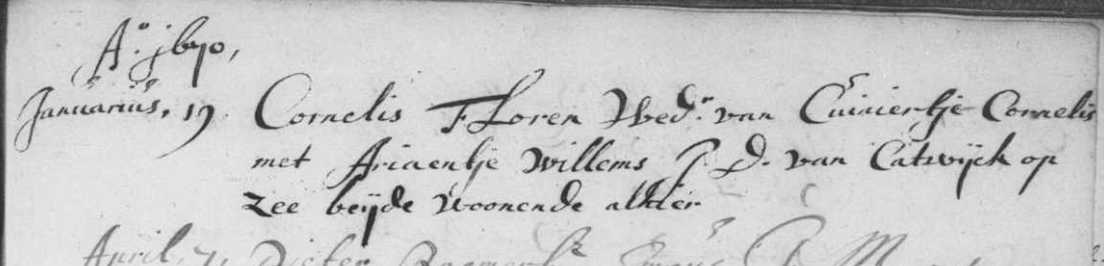 A.º j670,
Januarius, 19. Cornelis Floren Wedr. van Cuiniertje Cornelis
met Ariaentje Willems J. D. van Catwijck op
Zee beijde woonende alhier
April, 7,